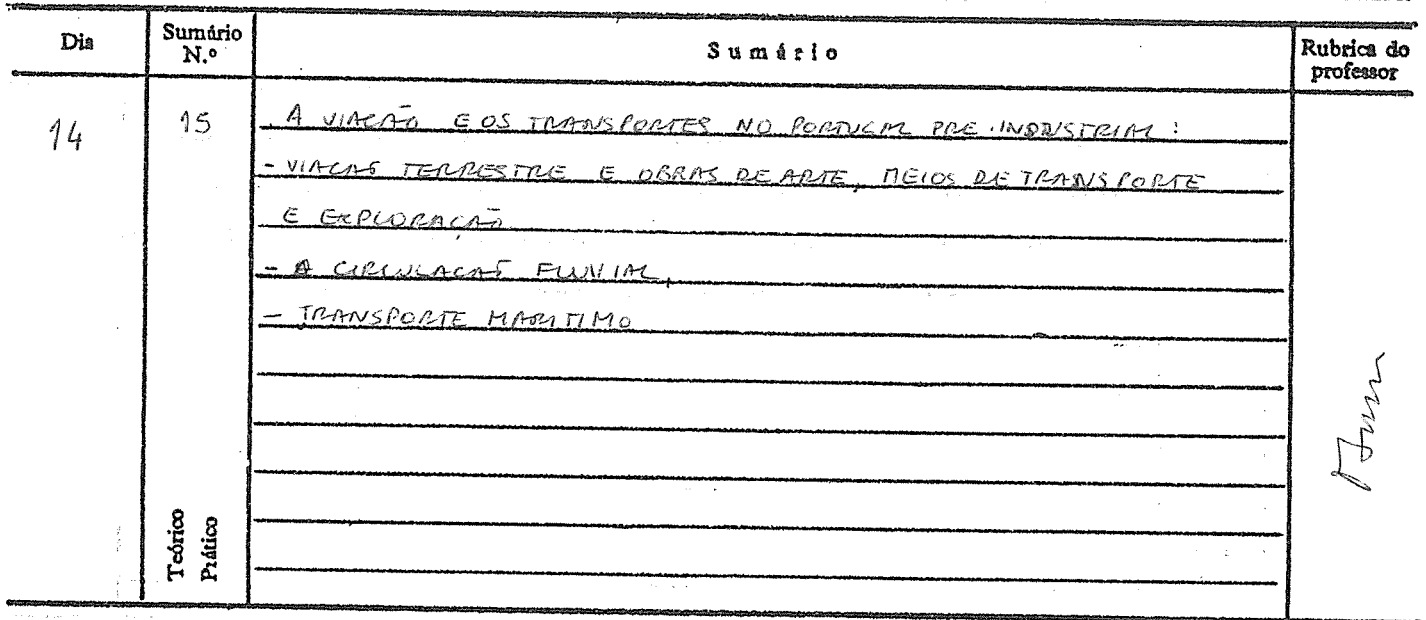 Dia Sumário N.º Sumário Rubrica do professor
14 15 . A VIAÇÃO E OS TRANSPORTES NO PORTUGAL PRE-INDUSTRIAL :
- VIAÇÃO TERRESTRE E OBRAS DE ARTE, MEIOS DE TRANSPORTE
E EXPLORAÇÃO
- A CIRCULAÇÃO FLUVIAL,
- TRANSPORTE MARITIMO
Teórico
Prático